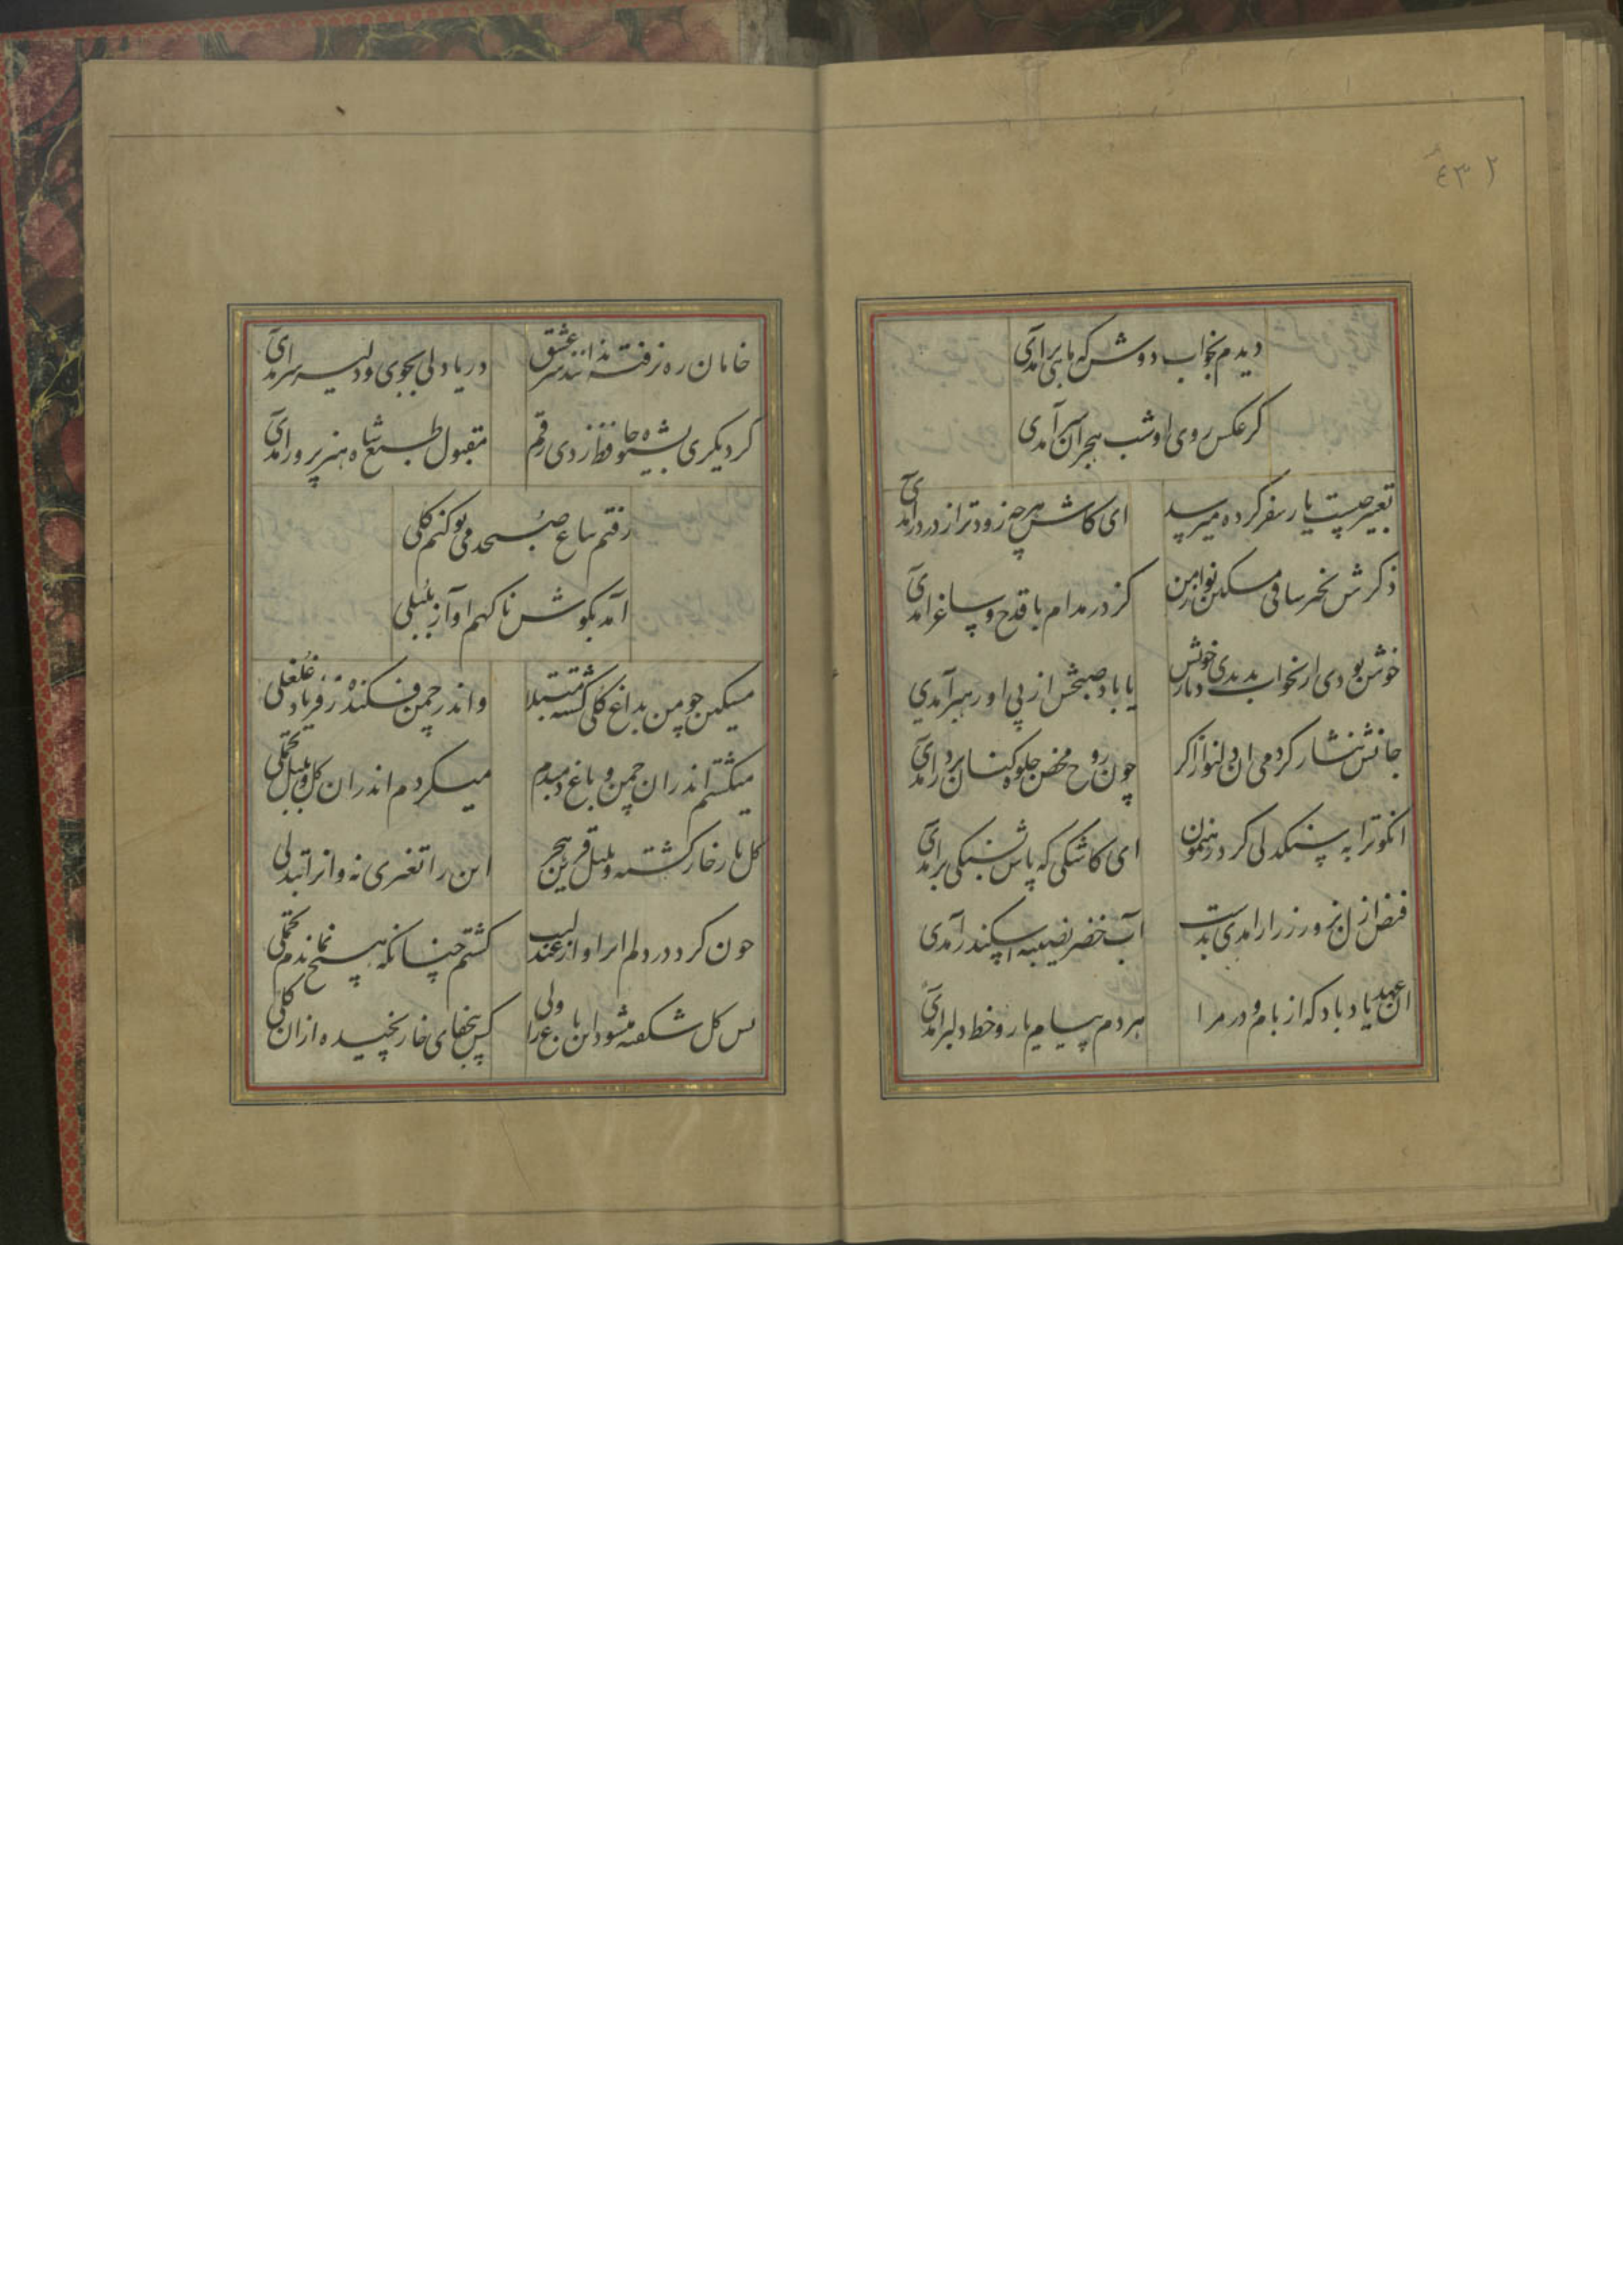 ٤٣٢
دیدم بخواب دوش که ماهی برآمدی
کز عکس روی او شب هجران سرآمدی
تعبیر چیست یار سفر کرده میرسد
ای کاش هرچه زودتر از در درآمدی
ذکرش بخیر ساقی مسکین نواز من
کز در مدام با قدح و ساغر آمدی
خوش بودی ار بخواب بدیدی دیار خویش
یا باد صبحش از پی او رهبر آمدی
جانش نثار کردمی آن دلنواز اگر
چون روح محض جلوه کنان بر در آمدی
انکو ترا به سنکدلی کرد رهنمون
ای کاشکی که پاش بسنکی برآمدی
فیض ازل بزور و زر ار آمدی بدست
آب خضر نصیبه اسکندر آمدی
آن عهد یاد باد که از بام و در مرا
هر دم پیام یار و خط دلبر آمدی
خامان ره نرفته ندانند سر عشق
دریا دلی بجوی و دلیر سرآمدی
کر دیکری بشیوه حافظ زدی رقم
مقبول طبع شاه هنرپرور آمدی
رفتم بباغ صبحدمی بو کنم کلی
آمد بکوش ناکهم اواز بلبلی
مسکین چو من بداغ کلی کشته مبتلا
واندر چمن فکنده ز فریاد غلغلی
میکشتم اندران چمن و باغ دمبدم
میکردم اندران کل و بلبل تحملی
کل یار خار کشته و بلبل قرین هجر
این را تغیری نه و انرا تبدلی
چون کرد در دلم اثر اواز عندلیب
کشتم چنانکه هیچ نماندم تحملی
بس کل شکفته میشود این باغ را ولی
کس بی جفای خار نچیده از ان کلی